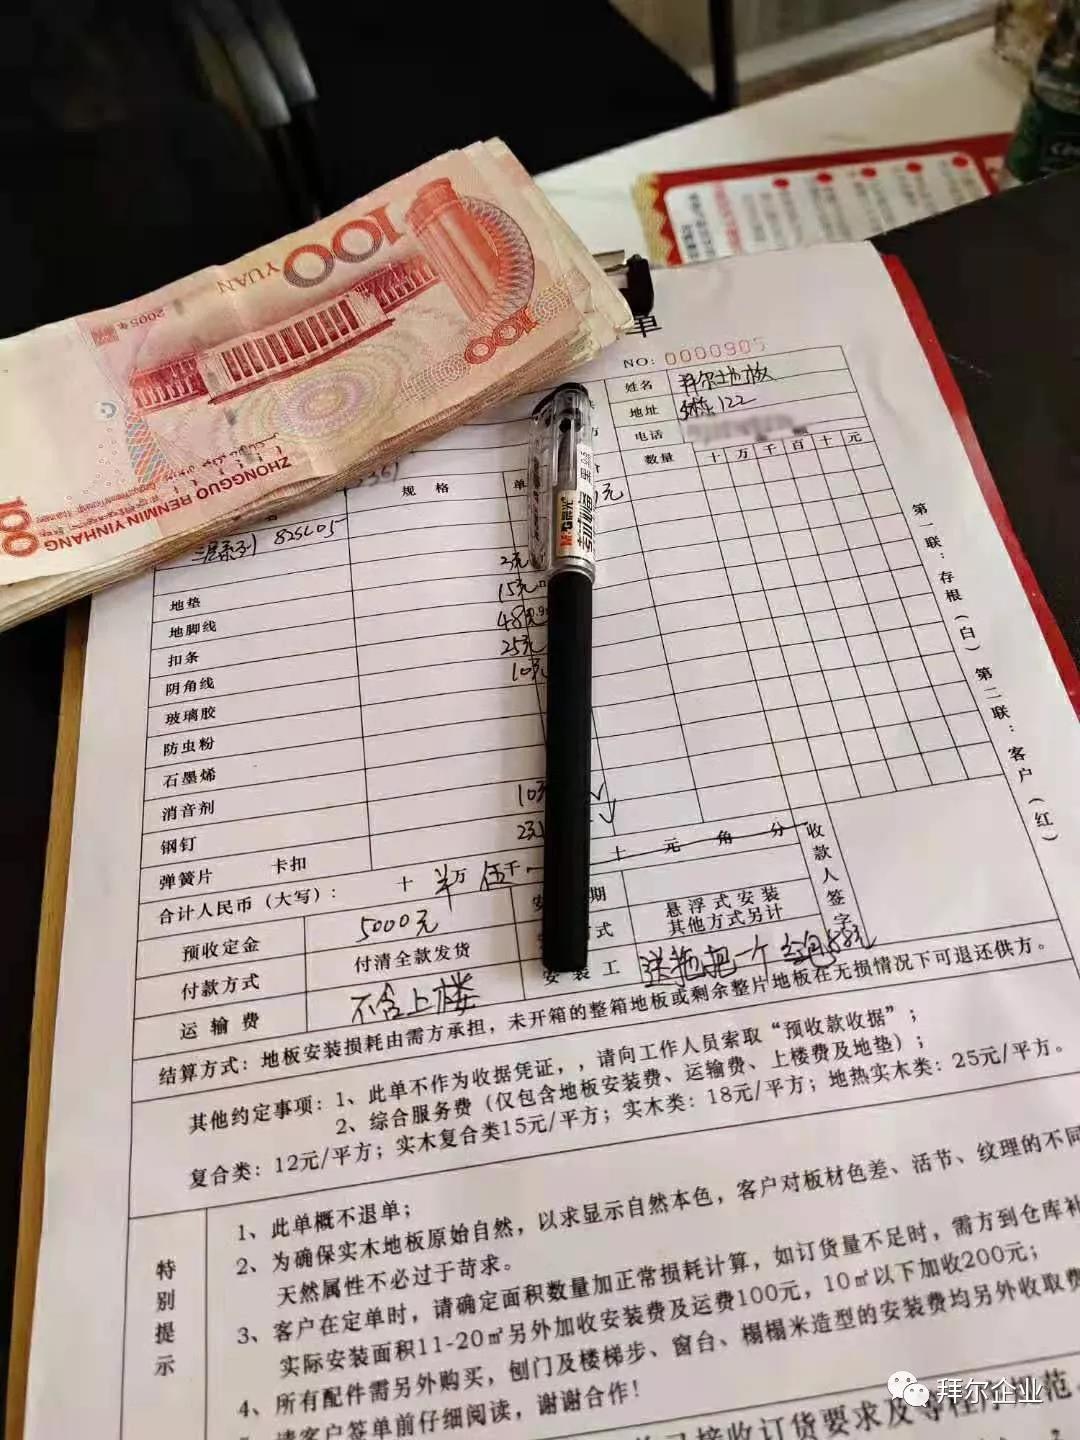 100
YUAN
2005年
100
ZHONGGUO RENMIN YINHANG
100
单
NO: 0000905
姓名 拜尔地板
地址 5栋122
电话
规格 单 数量 十 万 千 百 十 元
三层系列 825L05
地垫 2元
地脚线 15元
扣条 48元
阴角线 25元
玻璃胶 10元
防虫粉
石墨烯
消音剂
钢钉 10元
弹簧片 卡扣 2元
合计人民币（大写）： 十 半万 伍千 十 元 角 分
收款人签字
预收定金 5000元
付款方式 付清全款发货 悬浮式安装
其他方式另计
运输费 不含上楼 安装工 送拖把一个
第一联：存根（白）第二联：客户（红）
结算方式：地板安装损耗由需方承担，未开箱的整箱地板或剩余整片地板在无损情况下可退还供方。
其他约定事项：1、此单不作为收据凭证，，请向工作人员索取“预收款收据”；
2、综合服务费（仅包含地板安装费、运输费、上楼费及地垫）；
复合类：12元/平方；实木复合类15元/平方；实木类：18元/平方；地热实木类：25元/平方。
特别提示
1、此单概不退单；
2、为确保实木地板原始自然，以求显示自然本色，客户对板材色差、活节、纹理的不同
天然属性不必过于苛求。
3、客户在定单时，请确定面积数量加正常损耗计算，如订货量不足时，需方到仓库补
实际安装面积11-20㎡另外加收安装费及运费100元，10㎡以下加收200元；
4、所有配件需另外购买，刨门及楼梯步、窗台、榻榻米造型的安装费均另外收取费
请客户签单前仔细阅读，谢谢合作！
接收订货要求及
拜尔企业